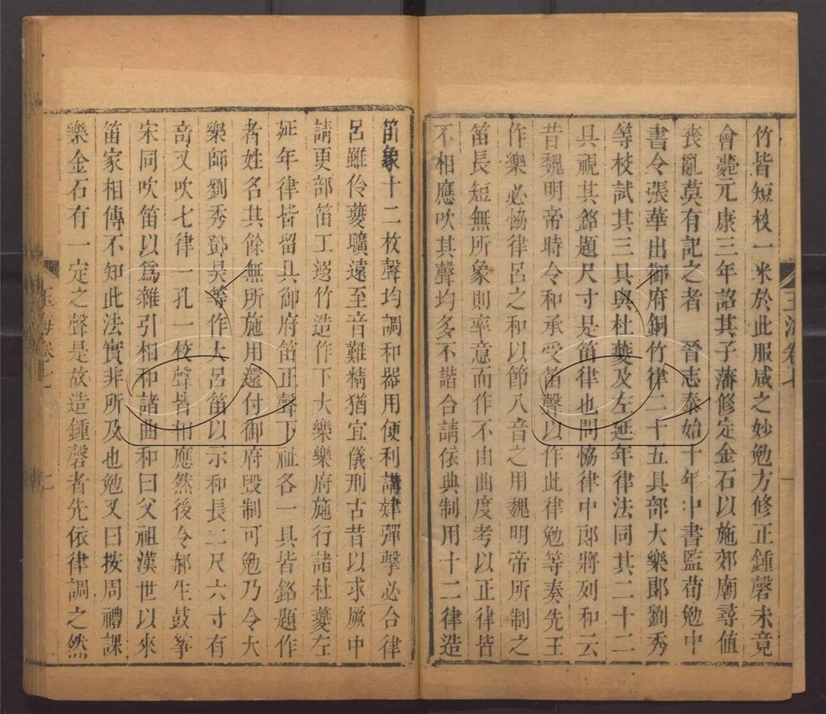 竹皆短校一米於此服咸之妙勉方修正鍾磬未竟
會薨元康三年詔其子藩修定金石以施郊廟尋值
喪亂莫有記之者　晉志泰始十年中書監荀勉中
書令張華出御府銅竹律二十五具部大樂郎劉秀
等校試其三具與杜夔及左延年律法同其二十二
具視其銘題尺寸是笛律也問恊律中郎將列和云
昔魏明帝時令和承受笛聲以作此律勉等奏先王
作樂必恊律呂之和以節八音之用魏明帝所制之
笛長短無所象則率意而作不由曲度考以正律皆
不相應吹其聲均多不諧合請依典制用十二律造
笛象十二枚聲均調和器用便利講肄彈擊必合律
呂雖伶夔曠遠至音難精猶宜儀刑古昔以求厥中
請更部笛工選竹造作下大樂樂府施行諸杜夔左
延年律皆留具御府笛正聲下祉各一具皆銘題作
者姓名其餘無所施用還付御府毀制可勉乃令大
樂師劉秀鄧昊等作大呂笛以示和長二尺六寸有
奇又吹七律一孔一校聲皆相應然後令郝生鼓筝
宋同吹笛以為雜引相和諸曲和曰父祖漢世以來
笛家相傳不知此法實非所及也勉又曰按周禮課
樂金石有一定之聲是故造鍾磬者先依律調之然
玉海卷七
玉海卷七